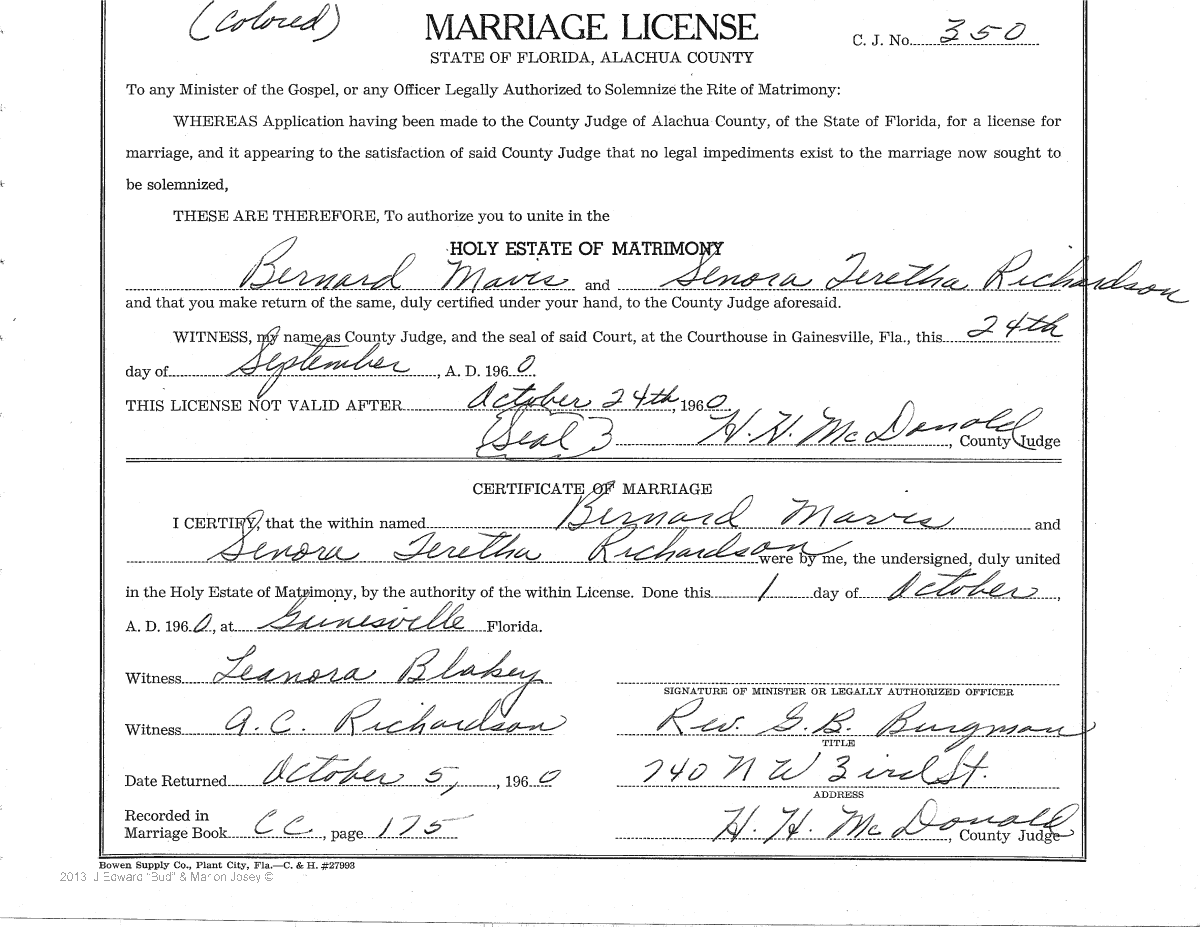 (Colored)
MARRIAGE LICENSE
C. J. No. 350
STATE OF FLORIDA, ALACHUA COUNTY
To any Minister of the Gospel, or any Officer Legally Authorized to Solemnize the Rite of Matrimony:
WHEREAS Application having been made to the County Judge of Alachua County, of the State of Florida, for a license for
marriage, and it appearing to the satisfaction of said County Judge that no legal impediments exist to the marriage now sought to
be solemnized,
THESE ARE THEREFORE, To authorize you to unite in the
HOLY ESTATE OF MATRIMONY
Bernard Mavis and Senora Teretha Richardson
and that you make return of the same, duly certified under your hand, to the County Judge aforesaid.
WITNESS, my name as County Judge, and the seal of said Court, at the Courthouse in Gainesville, Fla., this 24th
day of September, A. D. 1960.
THIS LICENSE NOT VALID AFTER October 24th, 1960
(Seal) H. H. McDonald, County Judge
CERTIFICATE OF MARRIAGE
I CERTIFY, that the within named Bernard Mavis and
Senora Teretha Richardson were by me, the undersigned, duly united
in the Holy Estate of Matrimony, by the authority of the within License. Done this 1 day of October,
A. D. 1960, at Gainesville Florida.
Witness Leanora Blakey
SIGNATURE OF MINISTER OR LEGALLY AUTHORIZED OFFICER
Witness A. C. Richardson Rev. G. B. Burgman
TITLE
Date Returned October 5, 1960 740 N W 3ird St.
ADDRESS
Recorded in
Marriage Book CC, page 175 H. H. McDonald, County Judge
Bowen Supply Co., Plant City, Fla.—C. & H. #27993
2013 J Edward "Bud" & Marion Josey ©